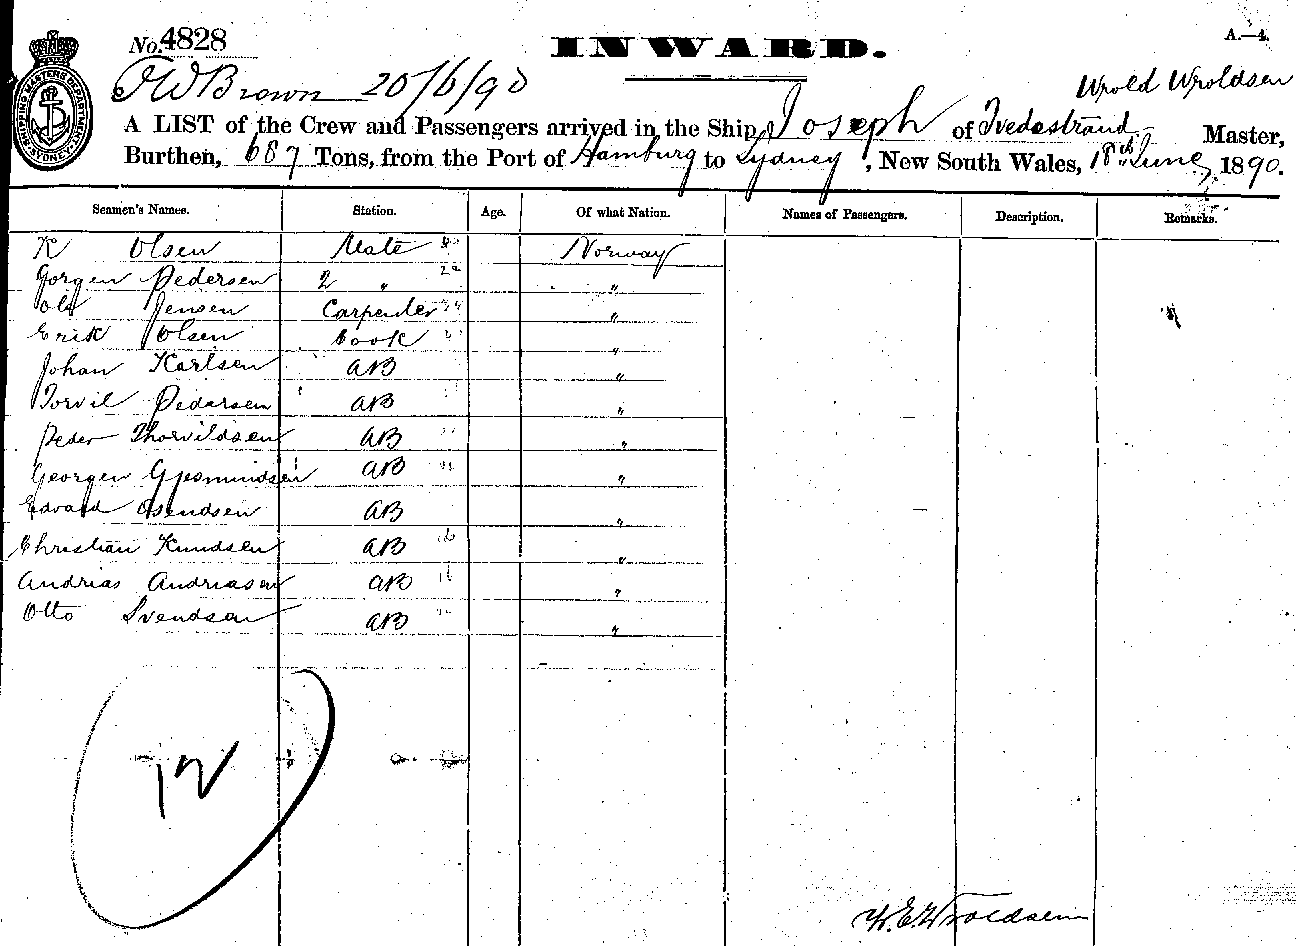 No. 4828
INWARD.
A.—4.
SHIPPING MASTERS DEPARTMENT SYDNEY
J W Brown 20/6/90
Wrold Wroldsen
A LIST of the Crew and Passengers arrived in the Ship Joseph of Tvedestrand Master,
Burthen, 687 Tons, from the Port of Hamburg to Sydney, New South Wales, 18th June, 1890.
Seamen's Names. Station. Age. Of what Nation. Names of Passengers. Description. Remarks.
K Olsen Mate Norway
Gorgen Pedersen 2 " 22 "
Ole Jensen Carpenter "
Erik Olsen Cook "
Johan Karlsen AB "
Torvil Pedersen AB "
Peder Thorvildsen AB "
Georgen AB "
Edvard Osendsen AB "
Christian Knudsen AB "
Andrias Andriasen AB "
Otto Svendsen AB "
12
W. E. Wroldsen